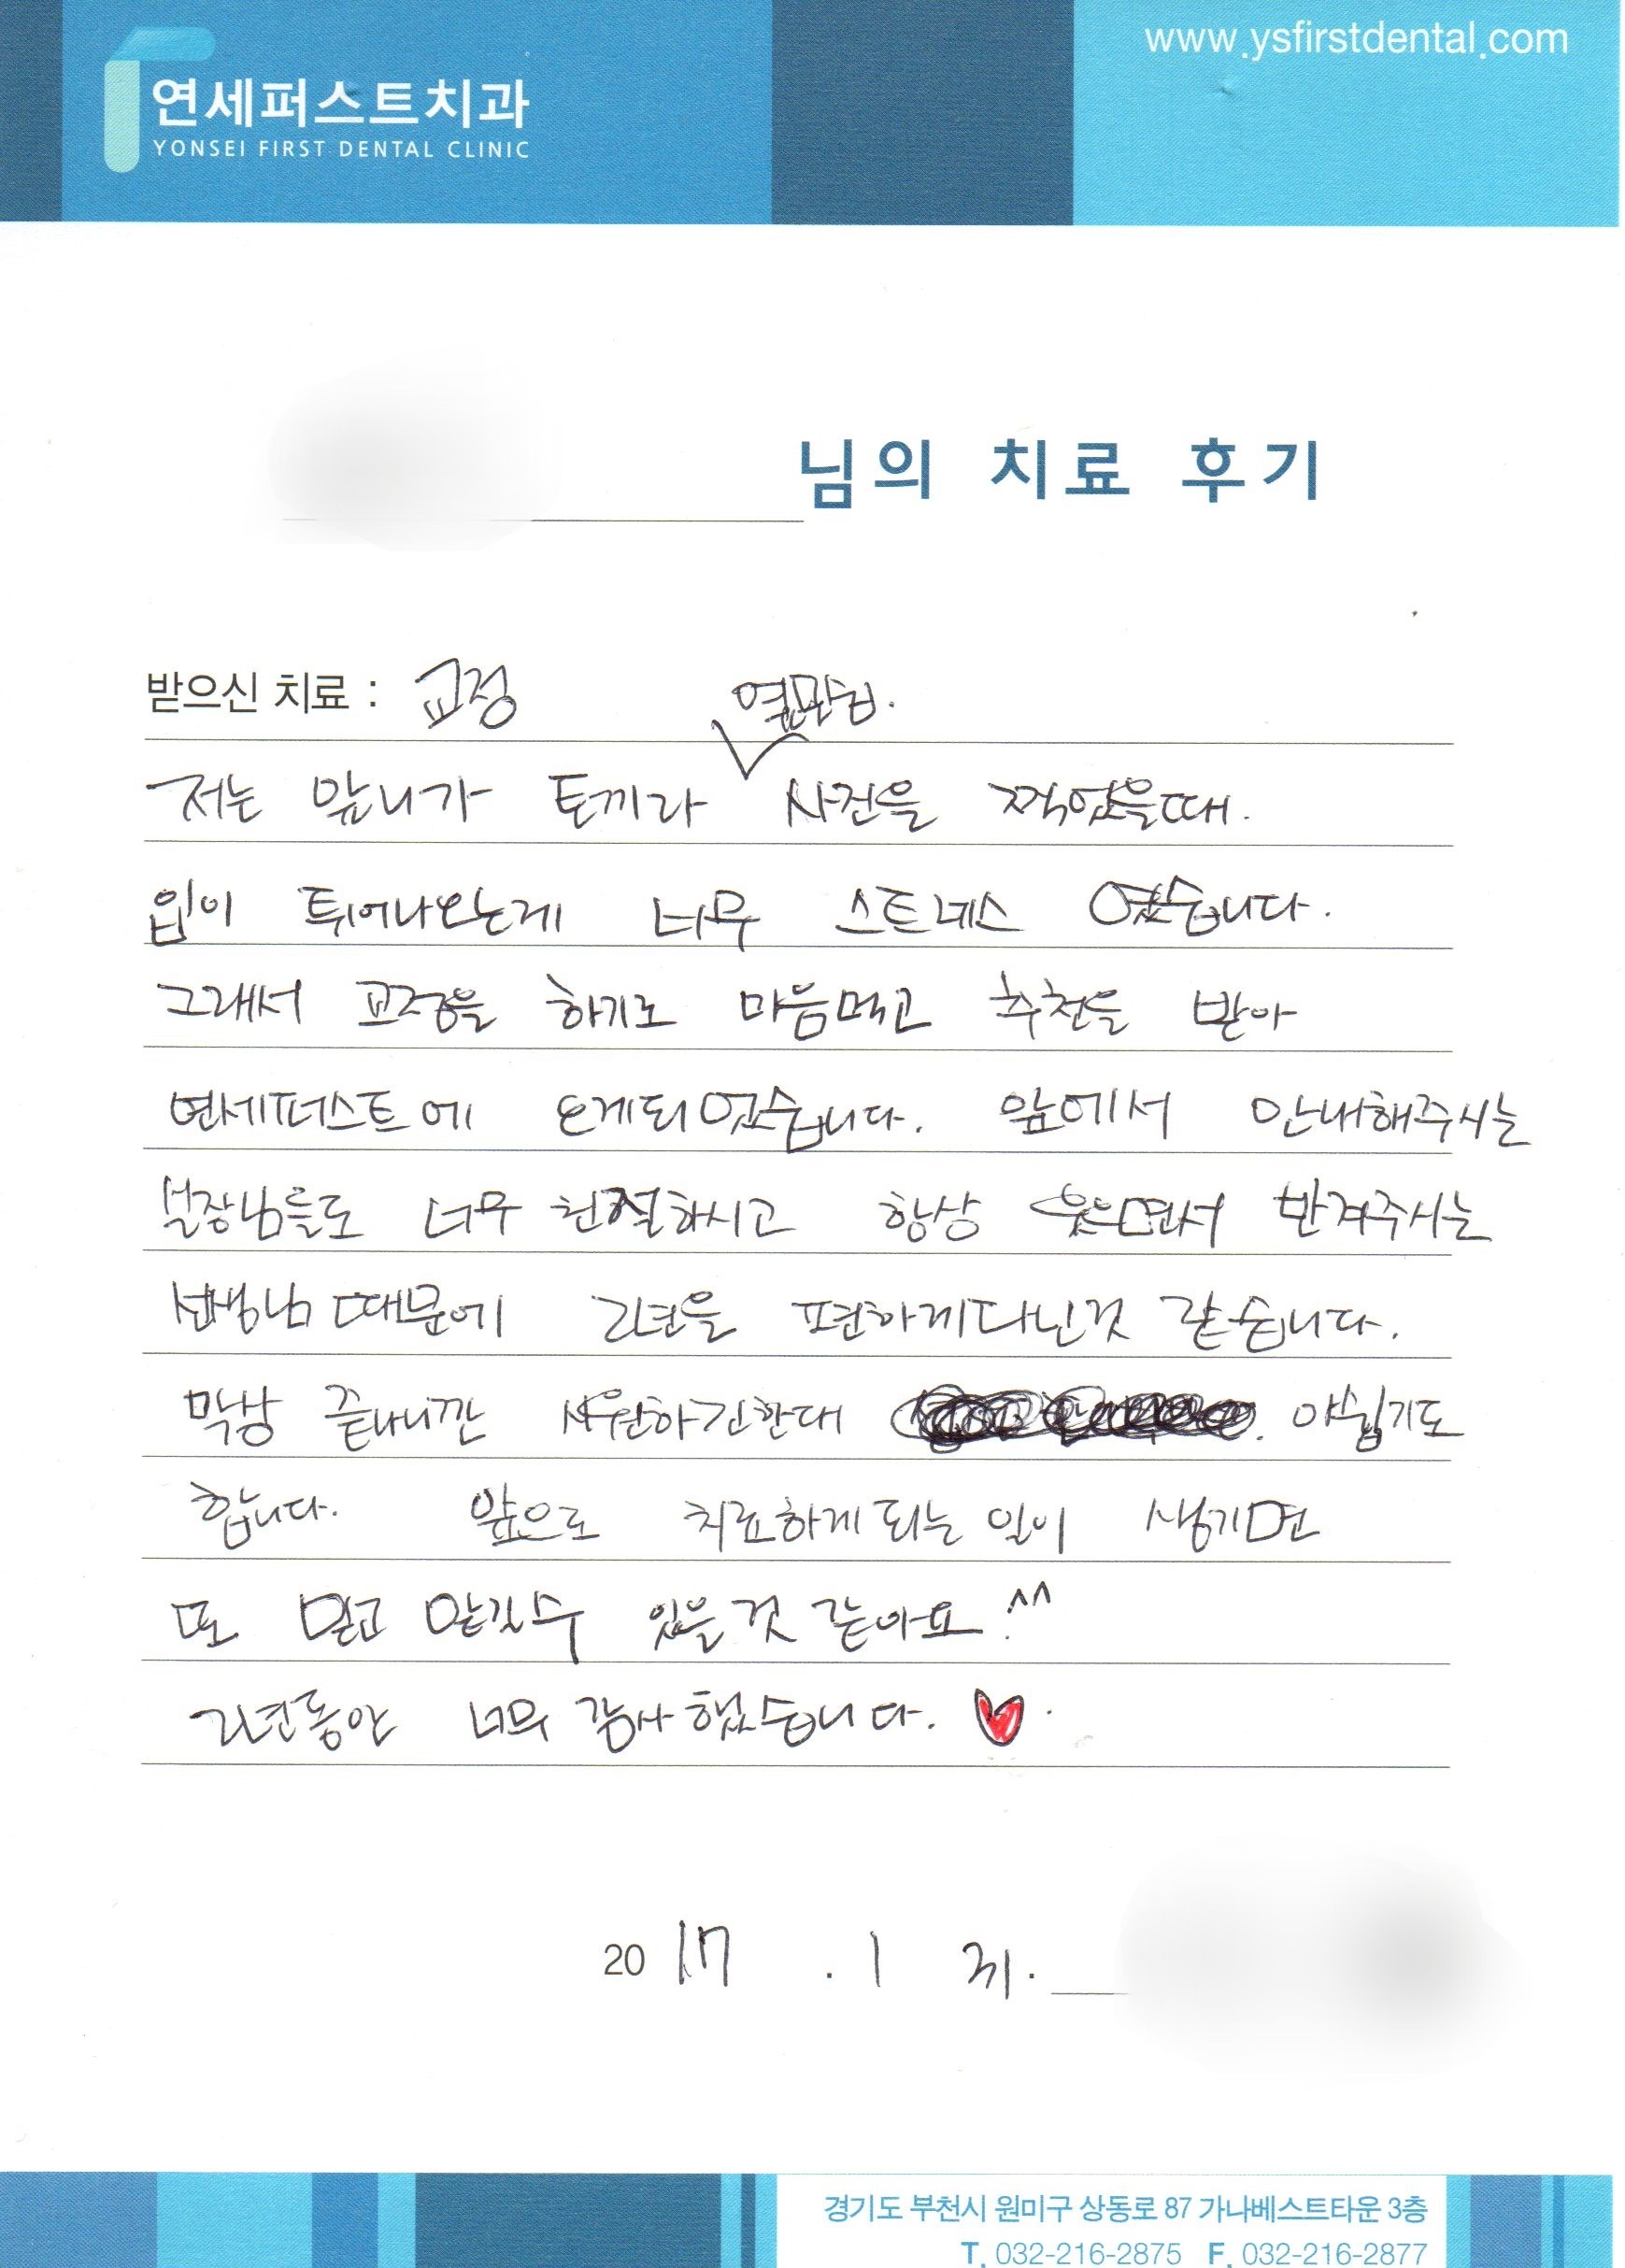 www.ysfirstdental.com
연세퍼스트치과
YONSEI FIRST DENTAL CLINIC
님의 치료 후기
받으신 치료 : 교정
옆모습.
저는 앞니가 토끼라 사진을 찍었을때.
입이 튀어나오는게 너무 스트레스 였습니다.
그래서 교정을 하기로 마음먹고 추천을 받아
연세퍼스트에 오게되었습니다. 앞에서 안내해주시는
실장님들도 너무 친절하시고 항상 웃으면서 반겨주시는
선생님 때문에 2년을 편하게다닌것 같습니다.
막상 끝나니깐 시원하긴한대 아쉽기도
합니다. 앞으로 치료하게되는 일이 생기면
또 믿고 맡길수 있을것 같아요^^
2년동안 너무 감사했습니다.
2017 . 1 31.
경기도 부천시 원미구 상동로 87 가나베스트타운 3층
T. 032-216-2875 F. 032-216-2877